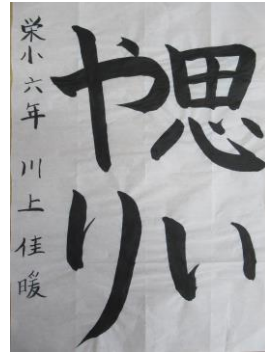 思い
やり
栄小六年 川上佳暖